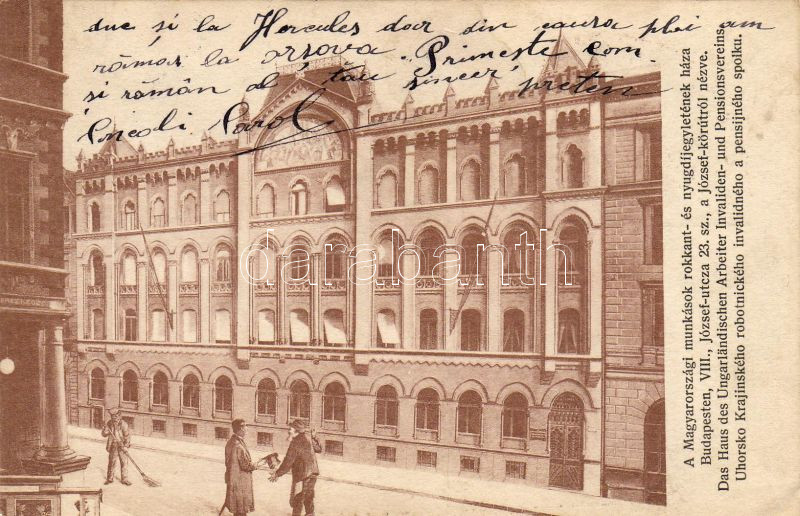 duc si la Hercules doar din causa plei am
rămas la orsova "Primește com.
si rămân al tău sincer prieten
Carol
A Magyarországi munkások rokkant- és nyugdijegyletének háza
Budapesten, VIII., József-utcza 23. sz., a József-körútról nézve.
Das Haus des Ungarländischen Arbeiter Invaliden- und Pensionsvereins.
Uhorsko Krajinského robotnického invalidného a pensijného spolku.
darabanth.com